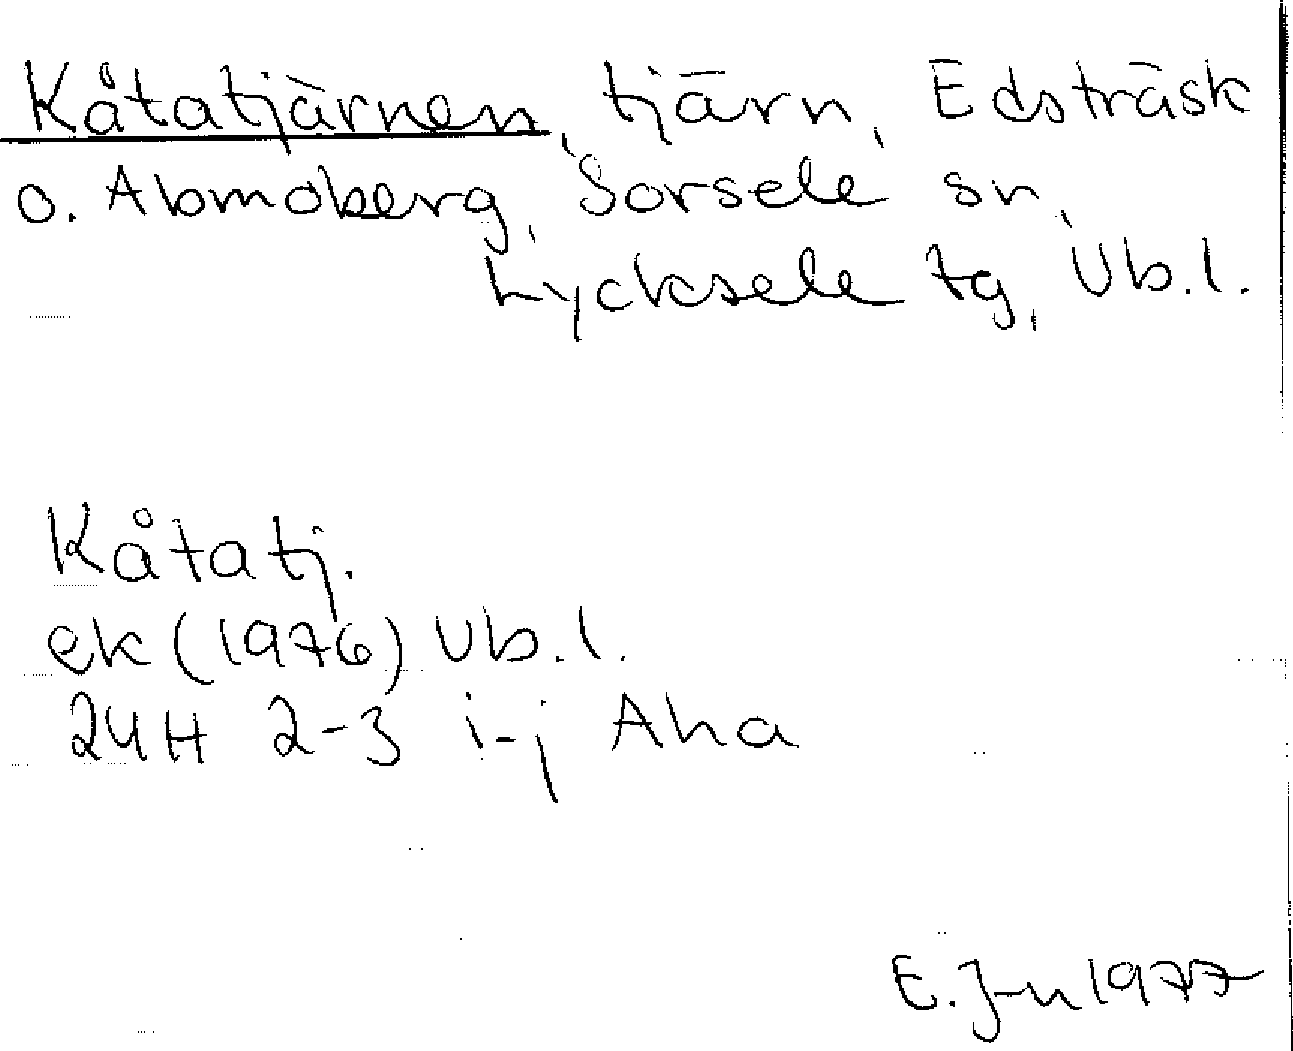 Kåtatjärnen, tjärn, Edsträsk
o. Abmoberg, Sorsele sn,
Lycksele tg, Vb.l.
Kåtatj.
ek (1976) Vb.l.
24H 2-3 i-j Aha
E. J-n 1977